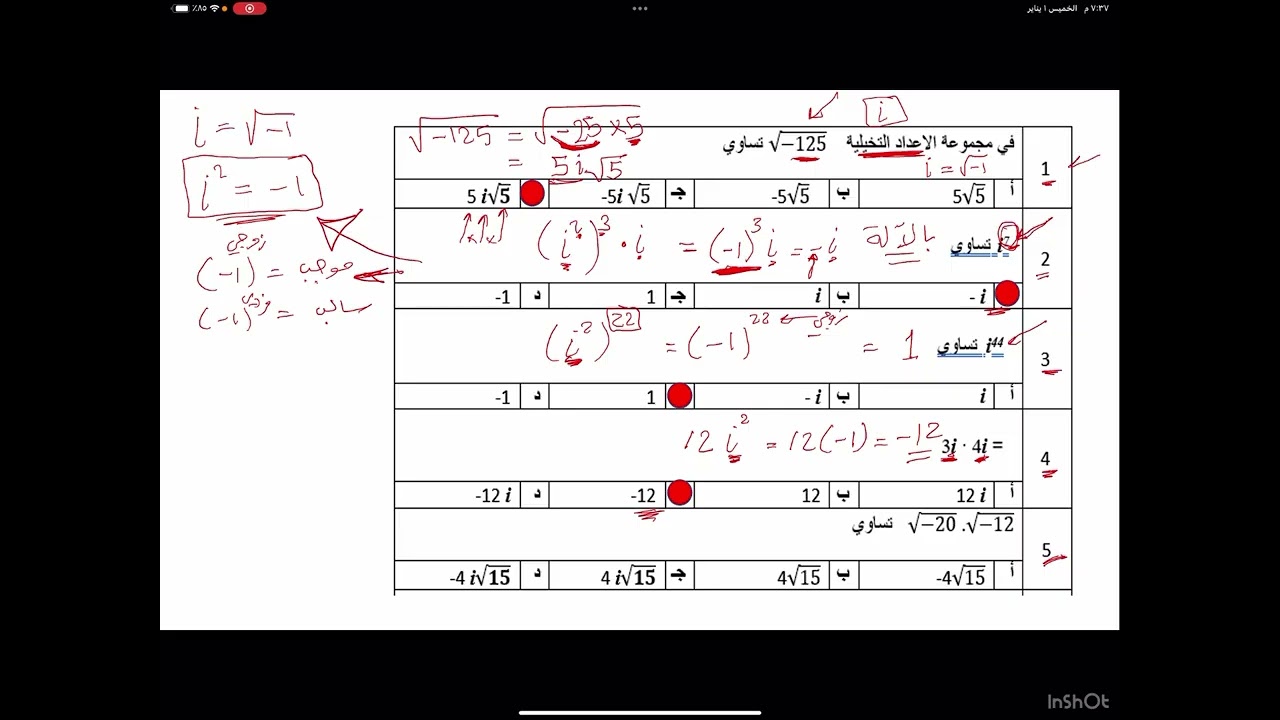 ٧:٣٧ م الخميس ١ يناير
٪٨٥
i = √-1
i² = -1
زوجي
(-1) = موجب
(-1)فردي = سالب
1
في مجموعة الاعداد التخيلية √-125 تساوي
i
i = √-1
√-125 = √-25×5
= 5i√5
أ 5√5 ب -5√5 جـ -5i √5 5 i√5
2
i⁷ تساوي
بالآلة
(i²)³ · i = (-1)³ i = -i
- i ب i جـ 1 د -1
3
i⁴⁴ تساوي
(i²)²² = (-1)²² زوجي = 1
أ i ب - i 1 د -1
4
3i · 4i =
12 i² = 12(-1) = -12
أ 12 i ب 12 -12 د -12 i
5
√-20 .√-12 تساوي
أ -4√15 ب 4√15 جـ 4 i√15 د -4 i√15
InShOt